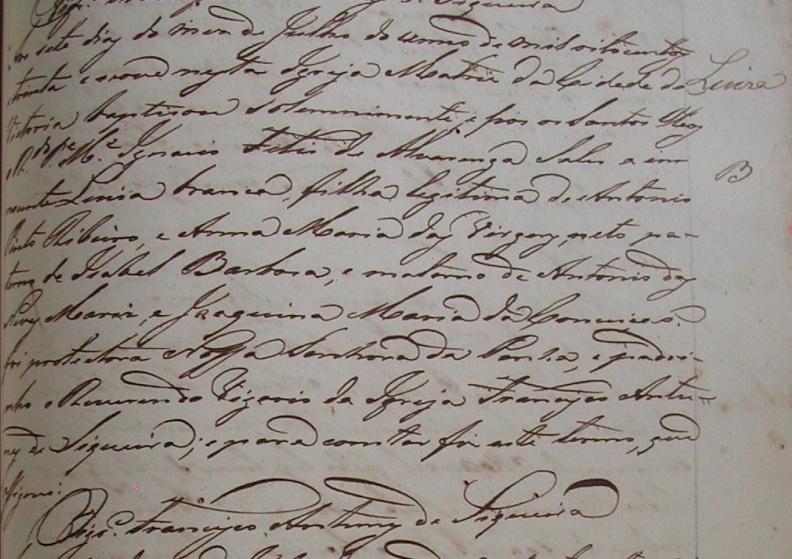 de Siqueira
sete dias do mes de Julho do anno de mil oitocentos
trinta e nove nesta Igreja Matriz da Cidade da
Luiza
Victoria baptisou solemnimente, e pos os Santos
o R.do P.e M.e Ignacio Felis de Alvarenga Sales a in
B
nocente Luiza branca, filha legitima de Antonio
Pinto Ribeiro, e Anna Maria das Virgens, neto pa-
terno de Isabel Barbosa, e materno de Antonio dos
Maria, e Joaquina Maria da Conceição.
foi protectora Nossa Senhora da Penha, e padri-
nho o Reverendo Vigario da Igreja Francisco Antu-
nes de Siqueira; e para constar fiz este termo, que
assignei.
Vigr.o Francisco Antunes de Siqueira